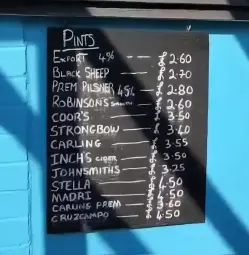 PINTS
EXPORT 4% - - - 2.60
BLACK SHEEP — 2.70
PREM PILSNER 4.5% - 2.80
ROBINSON'S SMOOTH — 2.60
COOR'S — 3.50
STRONGBOW — 3.40
CARLING — 3.55
INCH'S CIDER — 3.50
JOHNSMITHS — 3.25
STELLA — 4.50
MADRI — 4.50
CARLING PREM — .60
CRUZCAMPO — .50